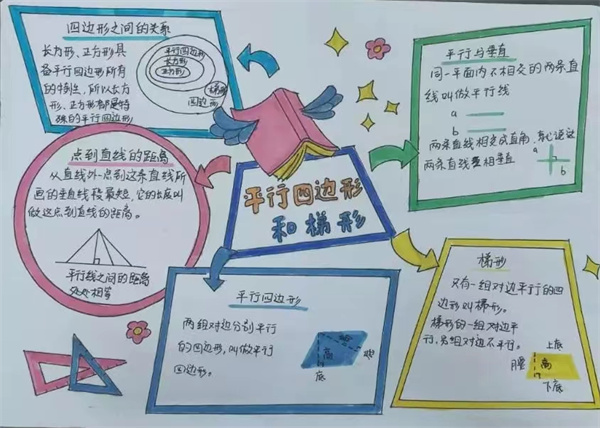 四边形之间的关系
长方形、正方形具
备平行四边形所有
的特征,所以长方
形、正方形都是特
殊的平行四边形
平行四边形
长方形
正方形
梯形
四边形
平行与垂直
同一平面内不相交的两条直
线叫做平行线
a
b
两条直线相交成直角,就说这
两条直线互相垂直
a
b
点到直线的距离
从直线外一点到这条直线所
画的垂直线段最短,它的长度叫
做这点到直线的距离。
平行线之间的距离
处处相等
平行四边形
和梯形
平行四边形
两组对边分别平行
的四边形,叫做平行
四边形。
高
底
梯形
只有一组对边平行的四
边形叫梯形。
梯形的一组对边平
行,另一组对边不平行。
上底
腰
高
下底